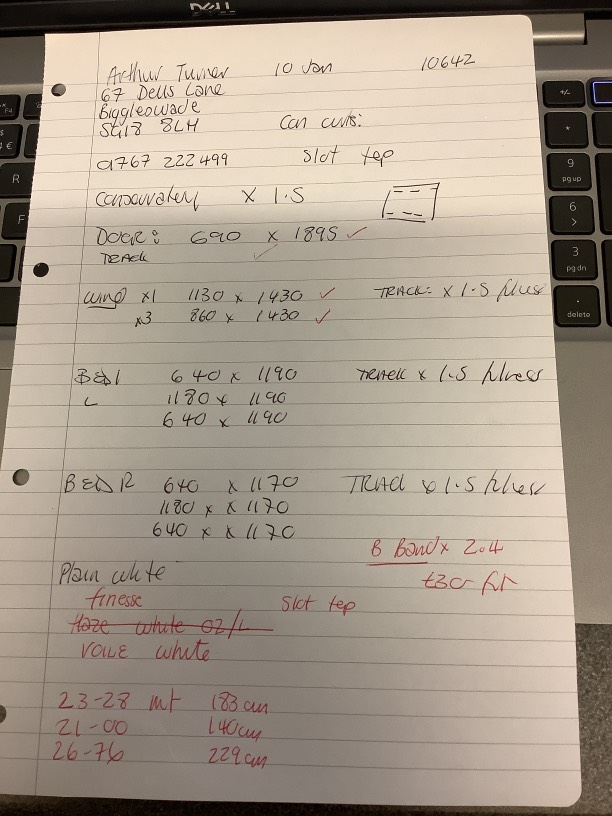 DELL
Arthur Turner 10 Jan 10642
67 Dells Lane
Biggleswade
SG18 8LH Can curts:
01767 222499 Slot top
Conservatory x 1.5
DOOR: 690 x 1895 ✓
TRACK ✓
Wind x1 1130 x 1430 ✓ TRACK: x 1.5
x3 860 x 1430 ✓
BED 1 640 x 1190 TRACK x 1.5
L 1180 x 1190
640 x 1190
BED R 640 x 1170 TRACK x 1.5
1180 x x 1170
640 x x 1170
B Band x 2.4
Plain white
finesse Slot top
Haze white 02/L
VOILE white
23-28 mt 183 cm
21-00 140 cm
26-76 229 cm
R
F
9
pg up
6
>
3
pg dn
+/-
*
.
delete